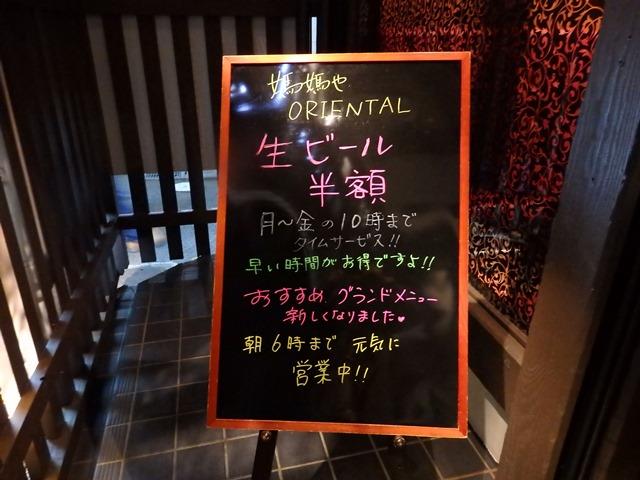 媽媽や
ORIENTAL
生ビール
半額
月～金の10時まで
タイムサービス!!
早い時間がお得ですよ!!
おすすめ、グランドメニュー
新しくなりました♥
朝6時まで 元気に
営業中!!